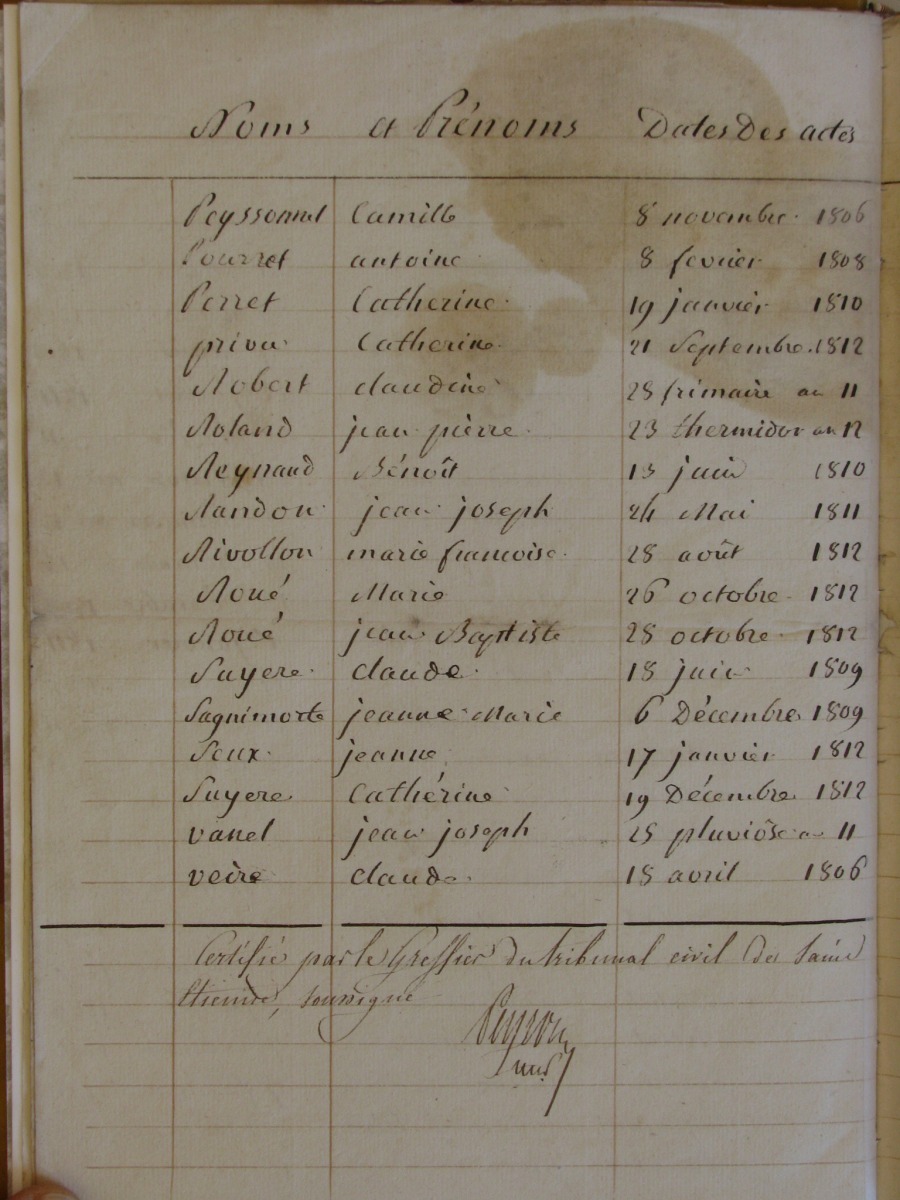 Noms et Prénoms Dates Des actes
Peyssonnel Camille 8 novembre 1806
Pourret antoine 8 fevrier 1808
Perret Catherine 19 janvier 1810
privu Catherine 21 Septembre 1812
Robert claudine 28 frimaire an 11
Roland jean pierre 23 thermidor an 12
Reynaud Bénoît 13 juin 1810
Randon jean joseph 24 Mai 1811
Rivollon marie francoise 28 août 1812
Roué Marie 26 octobre 1812
Roué jean Baptiste 28 octobre 1812
Suyere claude 18 juin 1809
Sagnimorte jeanne Marie 6 Décembre 1809
Seux jeanne 17 janvier 1812
Suyere Cathérine 19 Décembre 1812
vanel jean joseph 25 pluviôse an 11
veire claude 18 avril 1806
Certifié par le Greffier du tribunal civil de Saint
Etienne, soussigné
Peyron